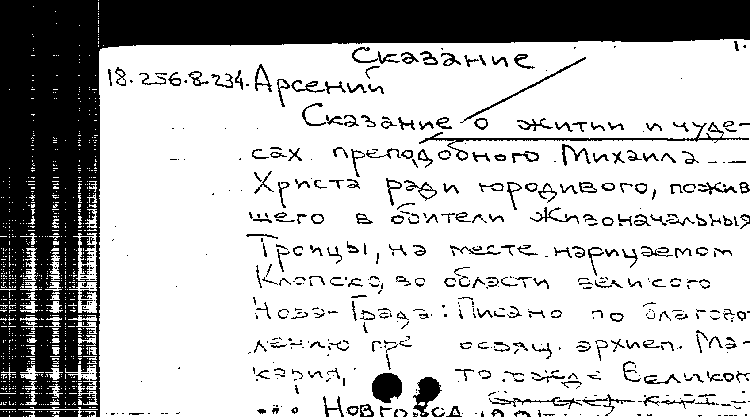 Сказание
18.256.8.234. Арсений
Сказание о житии и чуде-
сах преподобного Михаила
Христа ради юродивого, пожив
щего в обители Живоначальныя
Троицы, на месте нарицаемом
Клопско, во области великого
Нова-Града: Писано по благово
лению пре освящ. архиеп. Ма-
кария, тогожде Великог
Новгород